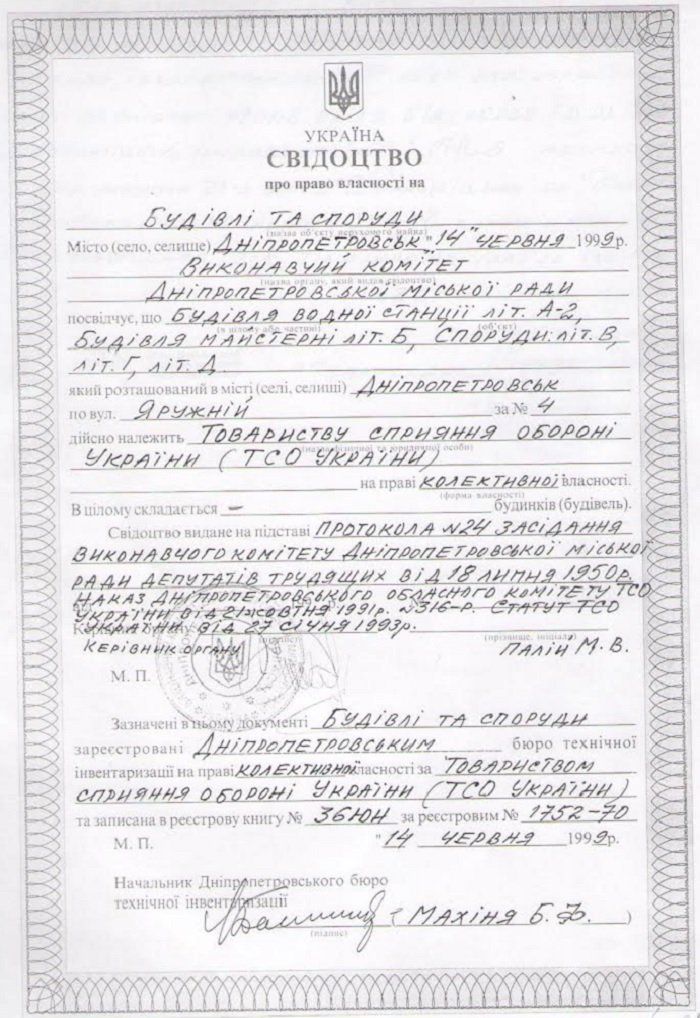 УКРАЇНА
СВІДОЦТВО
про право власності на
БУДІВЛІ ТА СПОРУДИ
(назва об'єкту нерухомого майна)
Місто (село, селище) ДНІПРОПЕТРОВСЬК "14" ЧЕРВНЯ 1999р.
ВИКОНАВЧИЙ КОМІТЕТ
(назва органу, який видав свідоцтво)
ДНІПРОПЕТРОВСЬКОЇ МІСЬКОЇ РАДИ
посвідчує, що БУДІВЛЯ ВОДНОЇ СТАНЦІЇ ЛІТ. А-2,
(в цілому або частині) (об'єкт)
БУДІВЛЯ МАЙСТЕРНІ ЛІТ. Б, СПОРУДИ: ЛІТ. В,
ЛІТ. Г, ЛІТ. Д
який розташований в місті (селі, селищі) ДНІПРОПЕТРОВСЬК
по вул. ЯРУЖНІЙ за № 4
дійсно належить ТОВАРИСТВУ СПРИЯННЯ ОБОРОНІ
УКРАЇНИ (ТСО УКРАЇНИ)
на праві КОЛЕКТИВНОЇ власності.
(форма власності)
В цілому складається — будинків (будівель).
Свідоцтво видане на підставі ПРОТОКОЛА №24 ЗАСІДАННЯ
ВИКОНАВЧОГО КОМІТЕТУ ДНІПРОПЕТРОВСЬКОЇ МІСЬКОЇ
РАДИ ДЕПУТАТІВ ТРУДЯЩИХ ВІД 18 ЛИПНЯ 1950р.
НАКАЗ ДНІПРОПЕТРОВСЬКОГО ОБЛАСНОГО КОМІТЕТУ ТСО
УКРАЇНИ ВІД 21 ЖОВТНЯ 1991р. №316-Р. СТАТУТ ТСО
УКРАЇНИ ВІД 27 СІЧНЯ 1993р.
(прізвище, ініціали)
КЕРІВНИК ОРГАНУ ПАЛІЙ М. В.
М. П.
Зазначені в цьому документі БУДІВЛІ ТА СПОРУДИ
зареєстровані ДНІПРОПЕТРОВСЬКИМ бюро технічної
інвентаризації на праві КОЛЕКТИВНОЇ власності за ТОВАРИСТВОМ
СПРИЯННЯ ОБОРОНІ УКРАЇНИ (ТСО УКРАЇНИ)
та записана в реєстрову книгу № 36ЮН за реєстровим № 1752-70
М. П. "14 ЧЕРВНЯ 1999р.
Начальник Дніпропетровського бюро
технічної інвентаризації
(МАХІНЯ Б. Ф.)
(підпис)